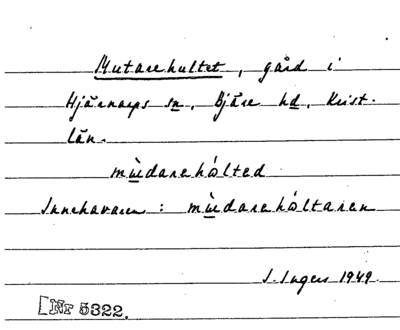 Mutarehultet, gård i
Hjärnarps sn, Bjäre hd, Krist.
län.
mùdarehòlted
Innehavaren: mùdarehòltaren
I. Ingers 1949.
[Nr 5322.